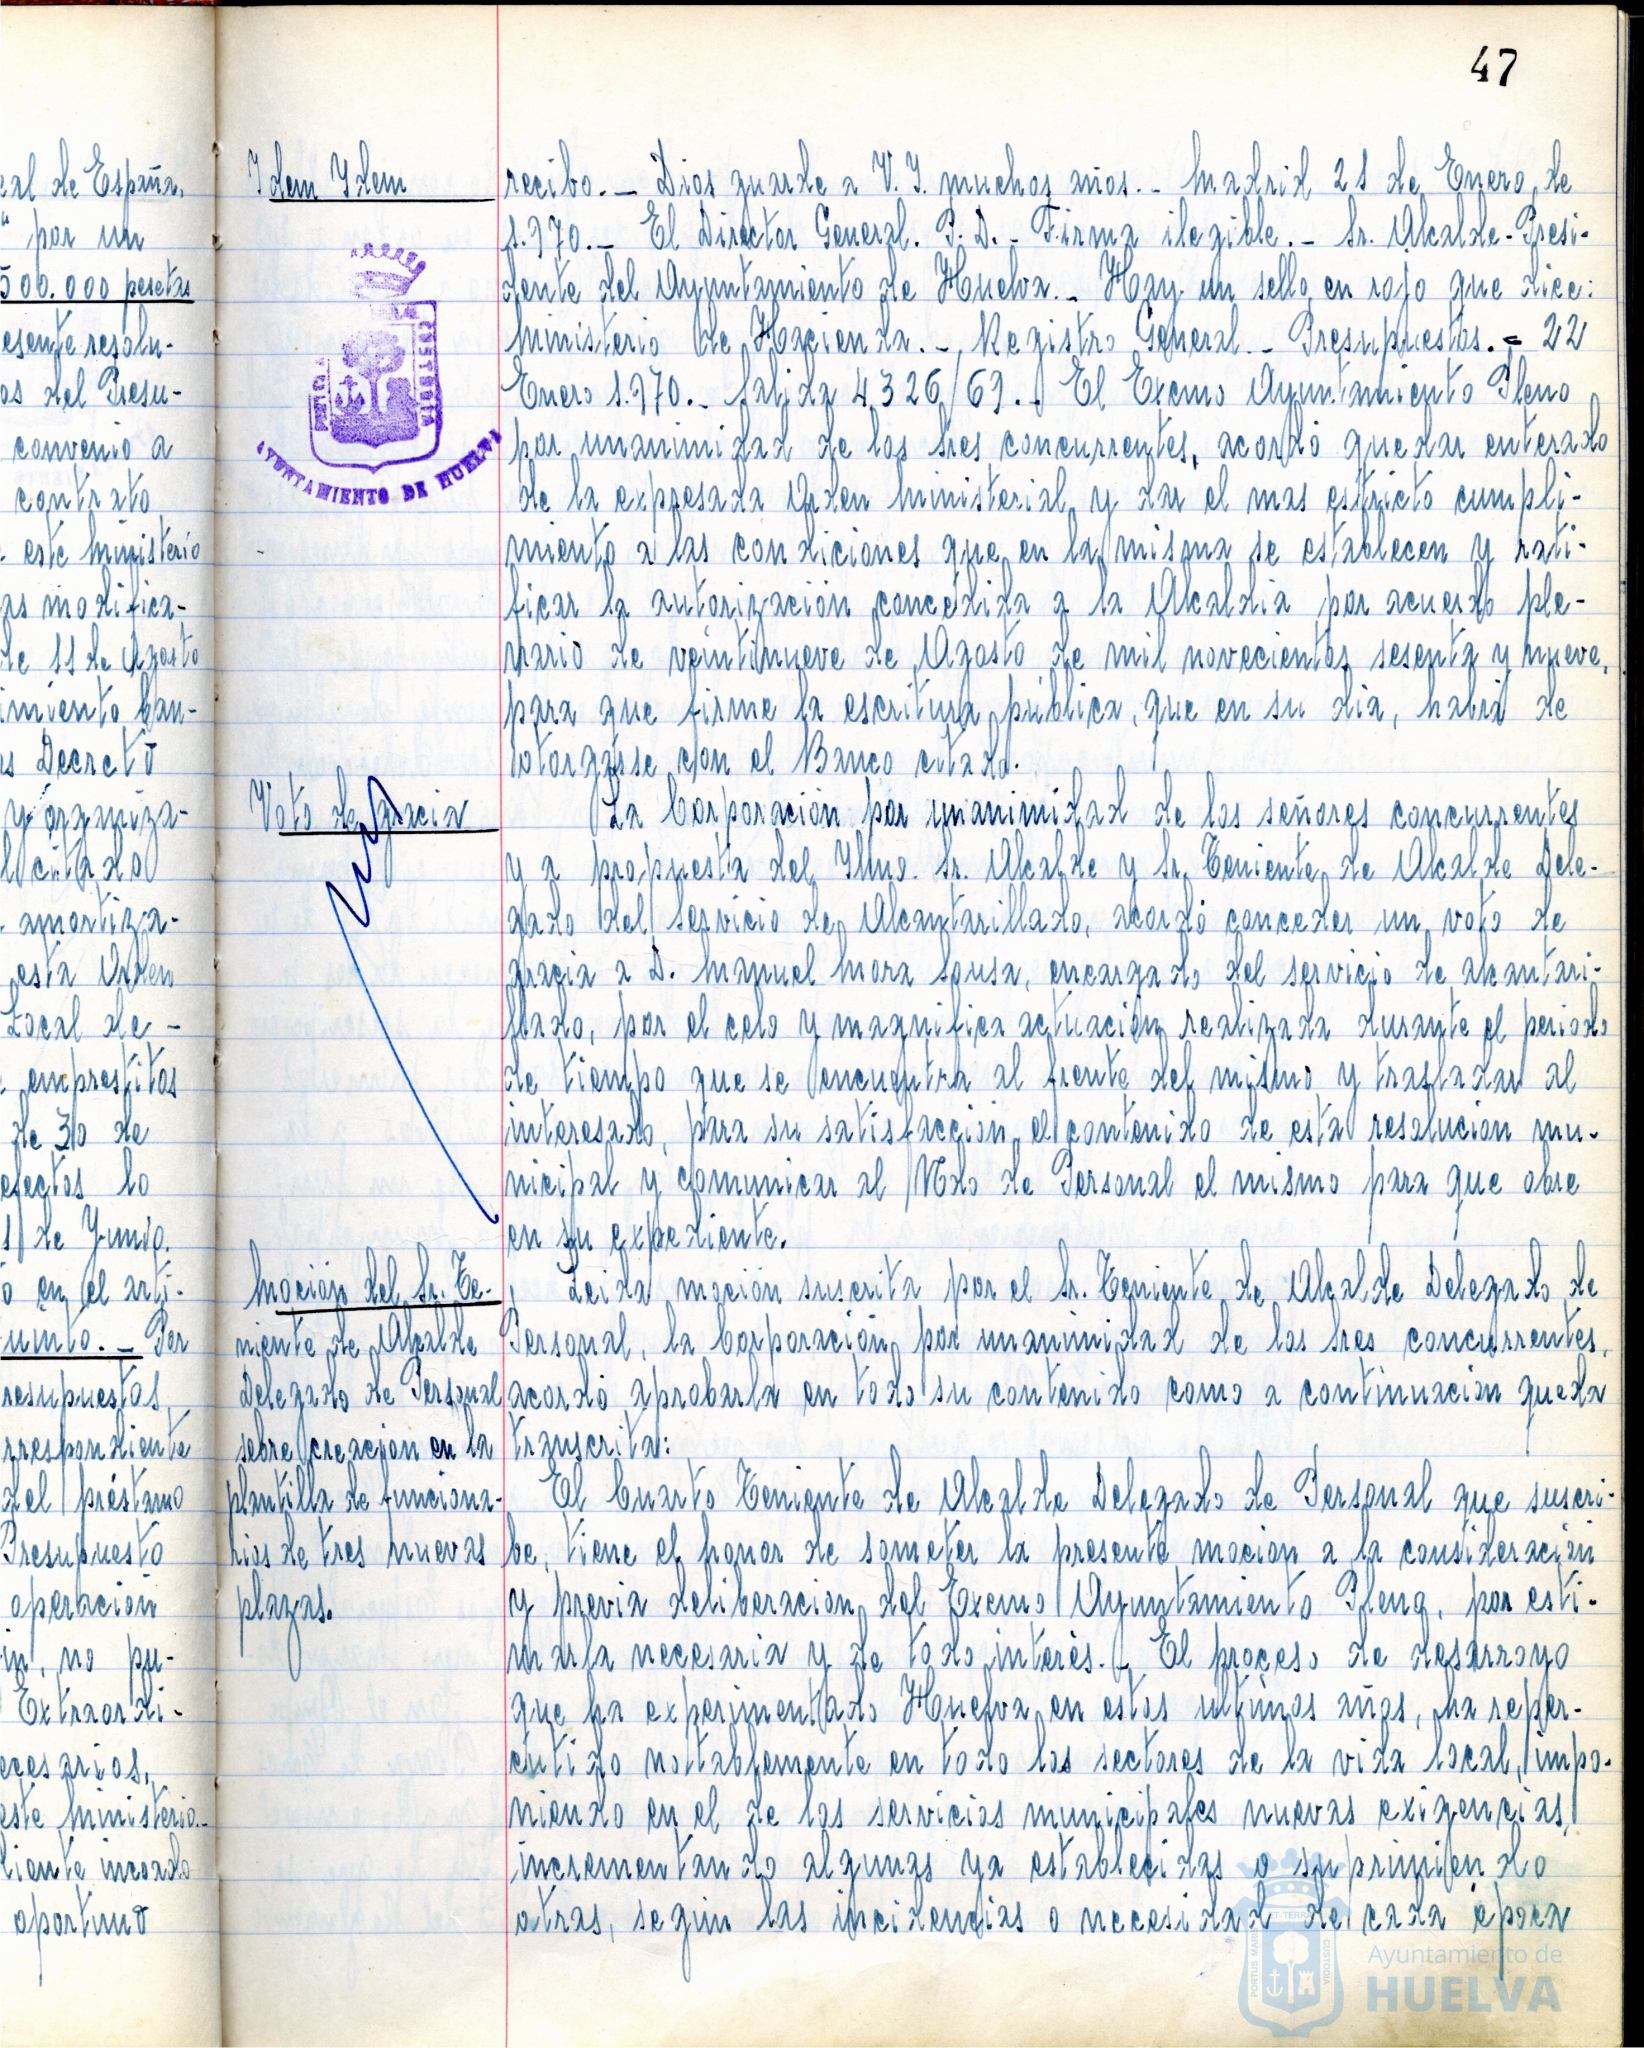 47
eal de España,
" por un
500.000 pesetas
esente resolu-
os del Presu-
convenio a
contrato
este Ministerio
as modifica-
de 11 de Agosto
imiento ban-
s Decreto
y organiza-
l citado
amortiza-
esta Orden
Local de -
empréstitos
de 30 de
efectos lo
de Junio.
o en el arti-
unto. - Por
resupuestos,
rrespondiente
del préstamo
Presupuesto
operación
in, no pu-
Extraordi-
ecesarios,
este Ministerio.-
diente incoado
oportuno
Idem Idem
AYUNTAMIENTO DE HUELVA
Voto de gracia
Moción del Sr. Te-
niente de Alcalde
Delegado de Personal
sobre creación en la
plantilla de funciona-
rios de tres nuevas
plazas.
recibo.- Dios guarde a V. I. muchos años.- Madrid 21 de Enero de
1.970.- El Director General. P. D.- Firma ilegible.- Sr. Alcalde-Presi-
dente del Ayuntamiento de Huelva.- Hay un sello en rojo que dice:
Ministerio de Hacienda.- Registro General.- Presupuestos.- 22
Enero 1.970.- Salida 4326/69.- El Excmo Ayuntamiento Pleno
por unanimidad de los Sres concurrentes, acordó quedar enterado
de la expresada Orden Ministerial y dar el mas estricto cumpli-
miento a las condiciones que en la misma se establecen y rati-
ficar la autorización concedida a la Alcaldia por acuerdo ple-
nario de veintinueve de Agosto de mil novecientos sesenta y nueve,
para que firme la escritura pública, que en su dia, habrá de
otorgarse con el Banco citado.
La Corporación por unanimidad de los señores concurrentes
y a propuesta del Iltmo. Sr. Alcalde y Sr. Teniente de Alcalde Dele-
gado del Servicio de Alcantarillado, acordó conceder un voto de
gracia a D. Manuel Mora Sousa, encargado del servicio de alcantari-
llado, por el celo y magnifica actuación realizada durante el periodo
de tiempo que se encuentra al frente del mismo y trasladar al
interesado, para su satisfacción el contenido de esta resolucion mu-
nicipal y comunicar al Ndo de Personal el mismo para que obre
en su expediente.
Leida moción suscrita por el Sr. Teniente de Alcalde Delegado de
Personal, la Corporación por unanimidad de los Sres concurrentes,
acordó aprobarla en todo su contenido como a continuacion queda
transcrita:
El Cuarto Teniente de Alcalde Delegado de Personal que suscri-
be, tiene el honor de someter la presente moción a la consideración
y previa deliberación del Excmo Ayuntamiento Pleno, por esti-
marla necesaria y de todo interés.- El proceso de desarroyo
que ha experimentado Huelva en estos ultimos años, ha reper-
cutido nottablemente en todo los sectores de la vida local, impo-
niendo en el de los servicios municipales nuevas exigencias,
incrementando algunas ya establecidas o suprimiendo
otras, según las incidencias o necesidad de cada época
Ayuntamiento de
HUELVA